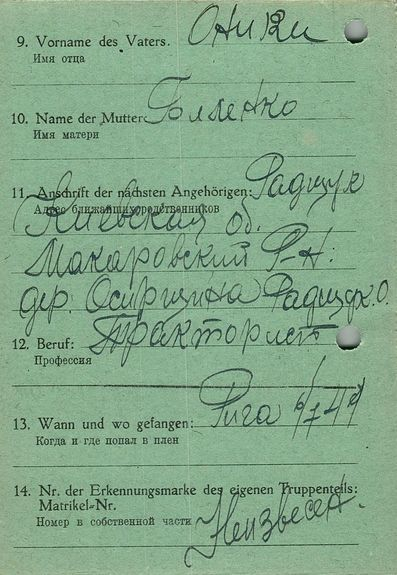 9. Vorname des Vaters. Оники
Имя отца
10. Name der Mutter: Бленко
Имя матери
11. Anschrift der nächsten Angehörigen: Радщук
Адрес ближайших родственников
Киевская об.
Макаровский р-н.
дер. Осирщина Радщук О.
12. Beruf: Тракторист
Профессия
13. Wann und wo gefangen: Рига
Когда и где попал в плен
14. Nr. der Erkennungsmarke des eigenen Truppenteils:
Matrikel-Nr.
Номер в собственной части Неизвесен.